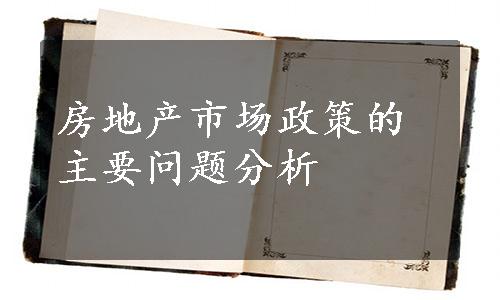 房地产市场政策的
主要问题分析